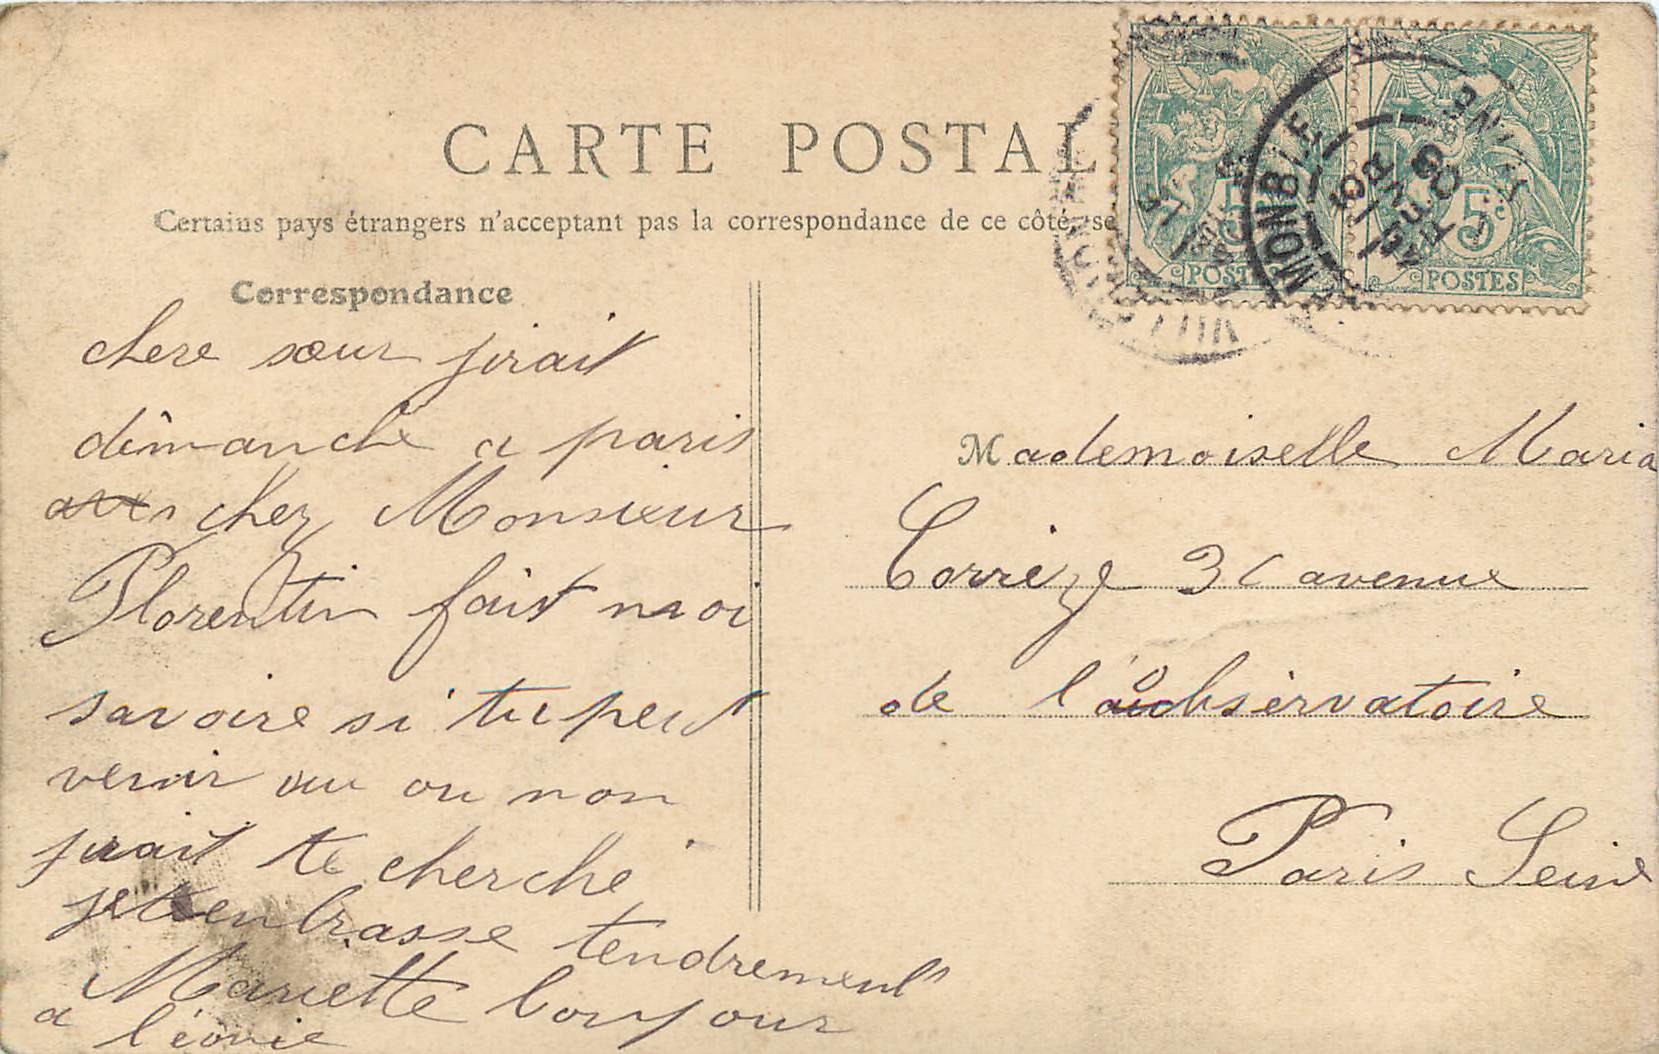 CARTE POSTAL
Certains pays étrangers n'acceptant pas la correspondance de ce côté, se
Correspondance
chere sœur jirait
dimanche a paris
chez Monsieur
Florentin fait moi
savoire si tu peut
venir ou non
jirait te cherché
je tenbrasse tendrement
Mariette bonjour
a léonie
Mademoiselle Maria
Corrèze 31 avenue
de l'observatoire
Paris Seine
5c
POSTES
5c
POSTES